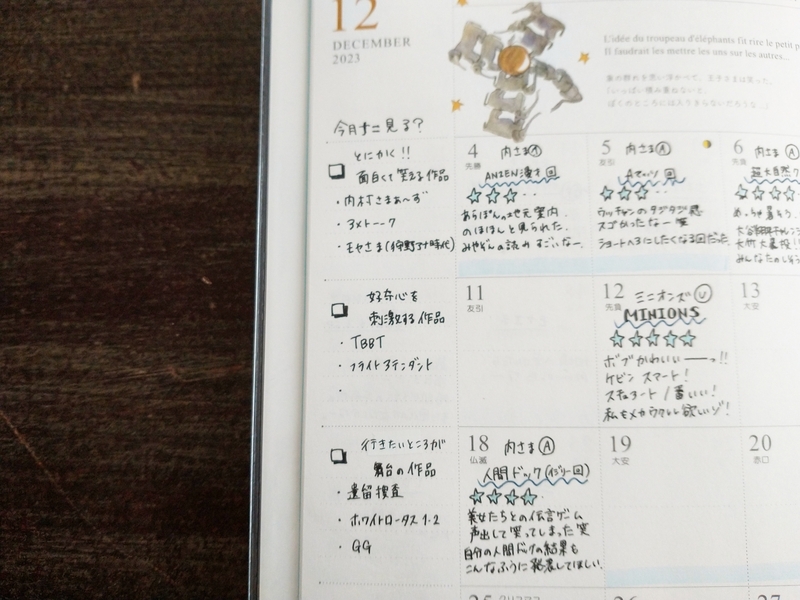 12
DECEMBER
2023
L'idée du troupeau d'éléphants fit rire le petit p
Il faudrait les mettre les uns sur les autres...
象の群れを思い浮かべて、王子さまは笑った。
「いっぱい積み重ねないと、
ぼくのところには入りきらないだろうな…」
今月すこ見る?
とにかく!!
面白くて笑える作品
・内村さまぁ〜ず
・アメトーーク
・もやさま(狩野アナ時代)
4 内さまⒶ
先勝
ANZEN漫才回
☆☆☆・・
あらぽんの地元案内。
のほほんと見られた。
みやぞんの読み すごいなー。
5 内さまⒶ
友引
回
☆☆☆・・
ウッチャンのタジタジ感
スゴかったなー 笑
ショートヘアにしたくなる回だった
6 内さまⒶ
先負
超大自然
☆☆☆☆
めっちゃ
みんなたのしそう
好奇心を
刺激する作品
・TBBT
・フライトアテンダント
・
11
友引
12 ミニオンズ Ⓤ
先負
MINIONS
☆☆☆☆☆
ボブかわいいーーっ!!
ケビン スマート!
スチュアート 1番いい!
私もメカウクレレ欲しいゾ!
13
大安
行きたいところが
舞台の作品
・遺留捜査
・ホワイトロータス 1・2
・GG
18 内さまⒶ
仏滅
人間ドック(イジリー回)
☆☆☆☆・
美女たちとの伝言ゲーム
声出して笑ってしまった 笑
自分の人間ドックの結果も
こんなふうに発表してほしい。
19
大安
20
赤口
25
26
27